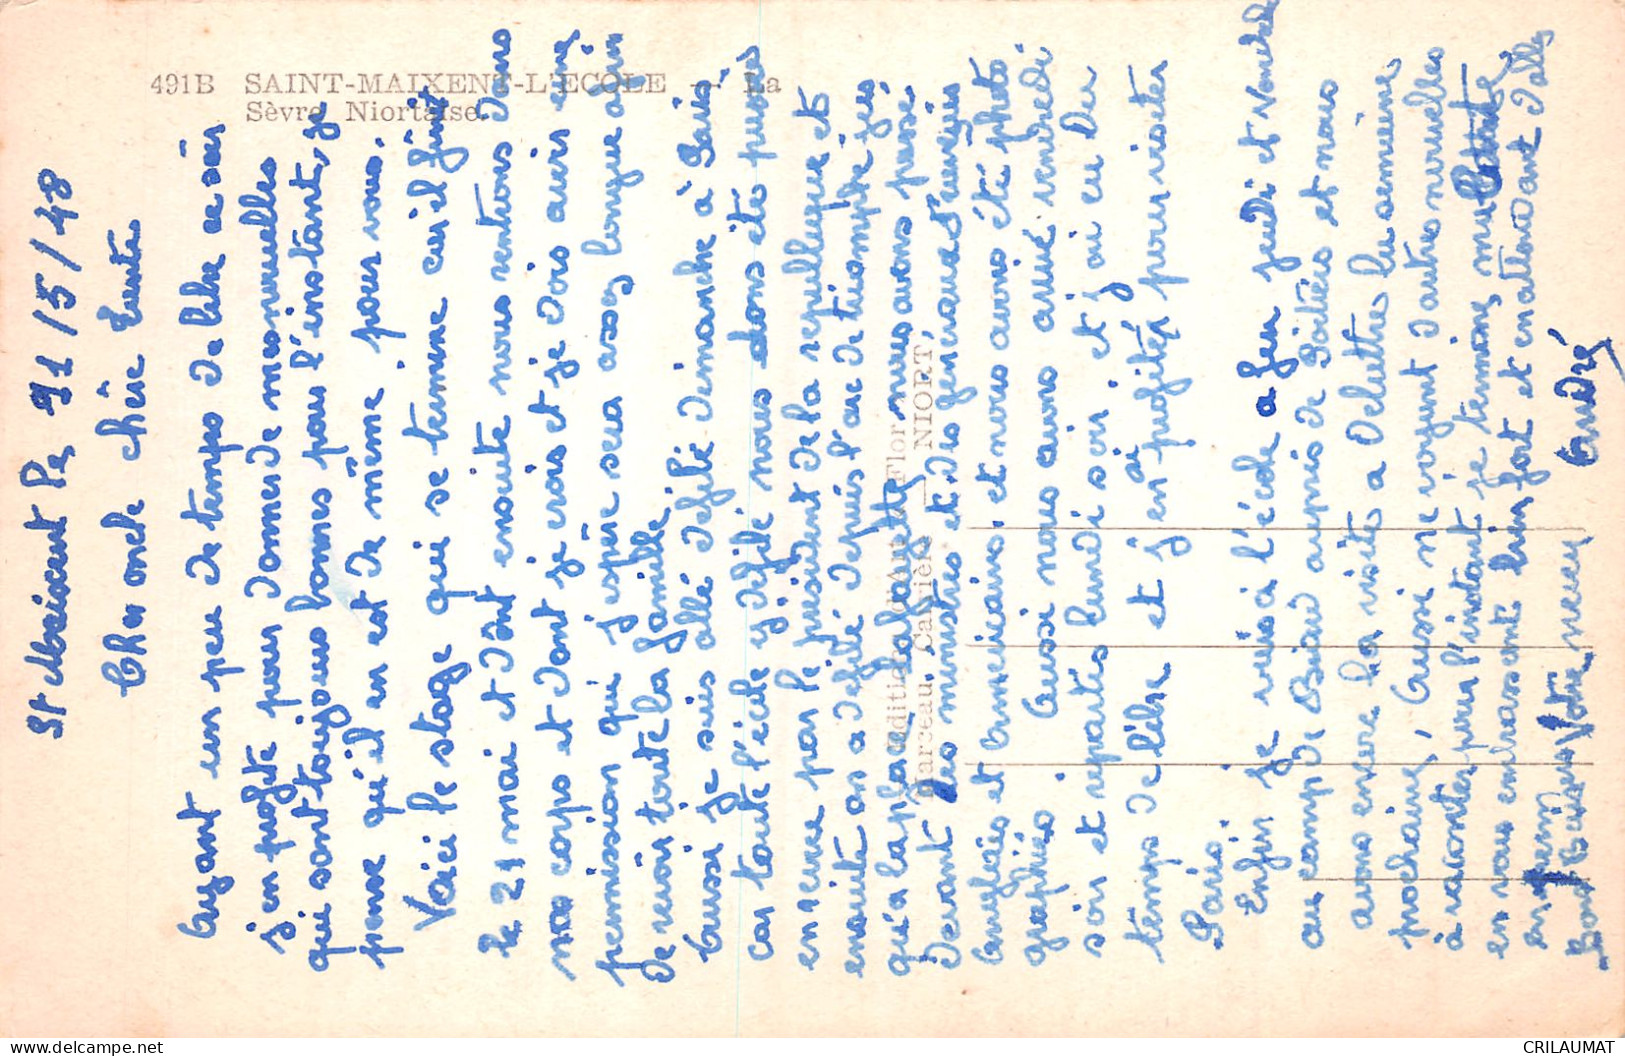 491B SAINT-MAIXENT-L'ECOLE — La
Sèvre Niortaise.
St Maixent le 11/5/48
Cher oncle chère tante
Ayant un peu de temps de libre ce soir
j'en profite pour donner de mes nouvelles
qui sont toujours bonnes pour l'instant, je
pense qu'il en est de même pour vous.
Voici le stage qui se termine car il finit
le 21 mai et dont ensuite nous rentrons dans
nos corps et dont je crois et je dois avoir une
permission qui j'espère sera assez longue afin
de revoir toute la famille.
Aussi je suis allé défilé dimanche à Paris
car toute l'école y défilé nous dons été passés
en revue par le président de la republique et
ensuite on a defilé depuis l'arc de triomphe jus
qu'a la place nous avons passé.
Devant des ministres et des généraux Français
Anglais et Américains. et nous avons été photo
graphiés. Aussi nous avons arrivé vendredi
soir et repartis lundi soir et j'ai eu du
temps de libre et j'en si profités pour visiter
Paris.
Enfin je vais à l'école a feu jeudi et Vendr
au camp de Biard auprès de Poitiers et nous
avons encore la visite a Delattre la semaine
prochaine, Aussi ne voyant d'autres nouvelles
à raconter pour l'instant je termine
en vous embrassant bien fort et en attendant d'alls
en perm
Bons Baisers Votre neveu André
Edition d'Art « Flor »
Marceau Carrière — NIORT
CRILAUMAT
delcampe.net